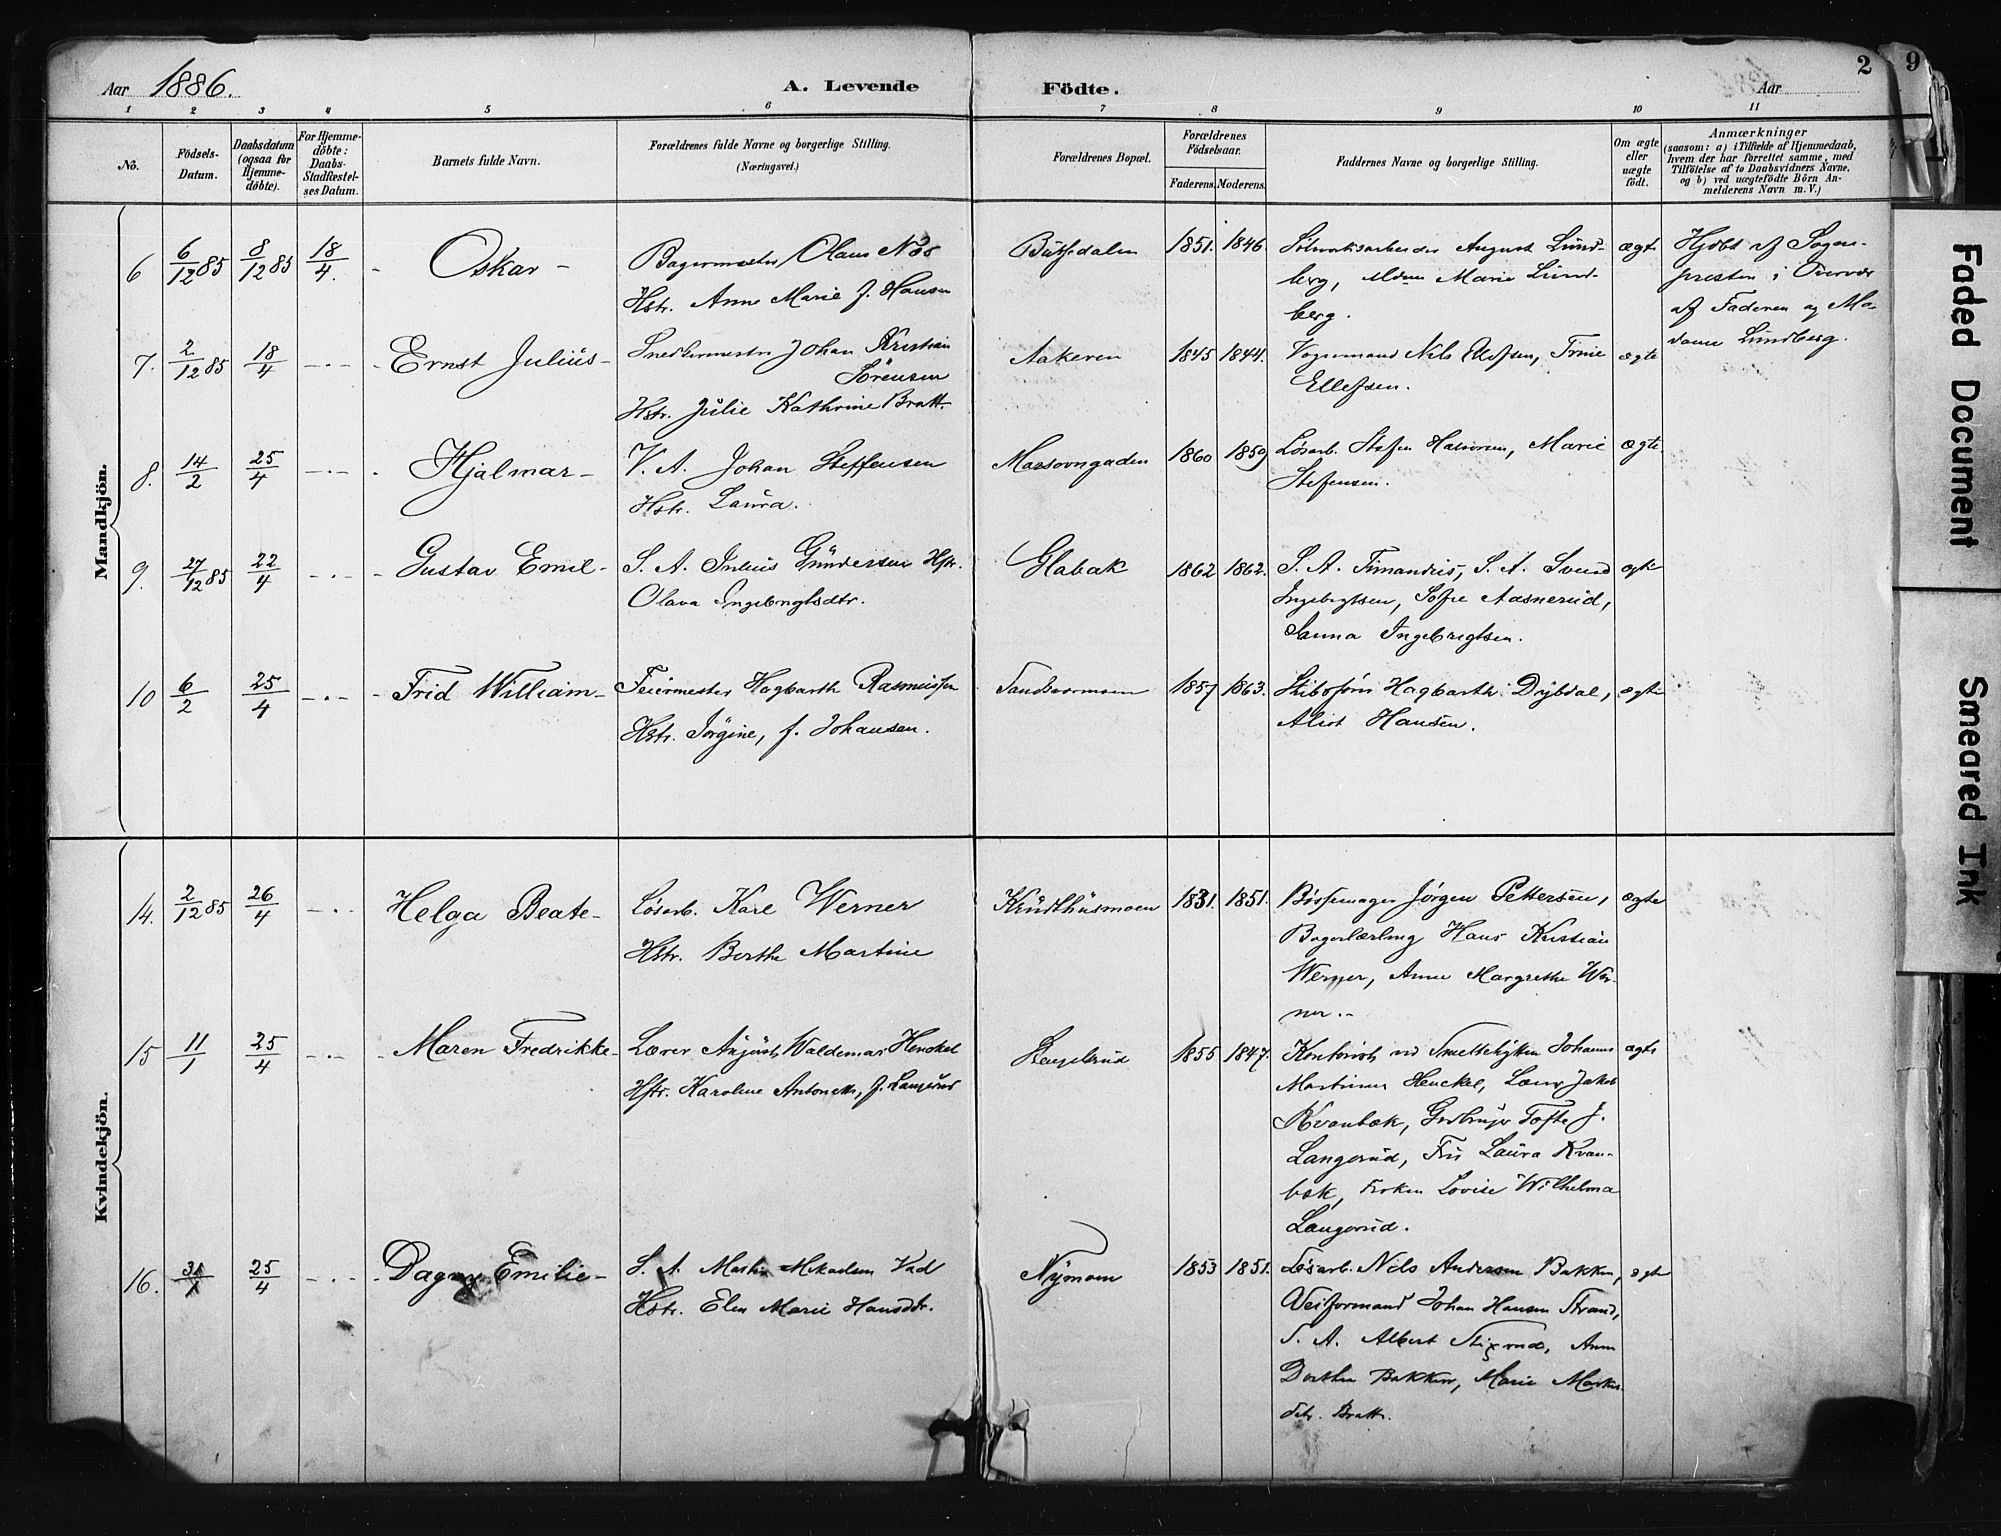 Aar 1886. A. Levende Födte. Aar 2 9
1 2 3 4 5 6 7 8 9 10 11
No. Födsels-Datum. Daabsdatum (ogsaa for Hjemme-döbte). For Hjemme-döbte: Daabs-Stadfæstel-ses Datum. Barnets fulde Navn. Forældrenes fulde Navne og borgerlige Stilling. (Næringsvei.) Forældrenes Bopæl. Forældrenes Födselsaar. Faderens. Moderens. Faddernes Navne og borgerlige Stilling. Om ægte eller uægte födt. Anmærkninger (saasom: a) i Tilfælde af Hjemmedaab, hvem der har forrettet samme, med Tilföielse af to Daabsvidners Navne, og b) ved uægtefödte Börn An-melderens Navn m. V.)
Mandkjön.
6 6/12 85 8/12 85 18/4. - Oskar - Bagermester Olaus Næs 1851. 1846 August Lund- ægte Hjdbt af Sogne-
Hstr. Anne Marie f. Hansen berg, Marie Lund- presten i Overvær
berg. af Faderen og Ma-
dame Lundberg.
7. 2/12 85 18/4 - Ernst Julius - Snedkermester Johan Kristian Aakeren 1845 1844. Vognmand Nils Ellefsen, Trine ægte
Sörensen Ellefsen.
Hstr. Julie Kathrine Bratt.
8. 14/2 25/4 - Hjalmar - V. A. Johan Steffensen Masovngaden 1860 1859 Løsarb. Marie ægte
Hstr. Laura. Stefensen.
9. 27/12 85 22/4 - Gustav Emil - S. A. Julius Gundersen Hstr. Glabak 1862 1862. S. A. S. A. ægte
Olava Ingebrigtsdtr. Ingebrigtsen, Sofie Aasnerud,
Ingebrigtsen.
10 6/2 25/4 - Frid William - Feiermester Hagbarth Rasmussen 1857 1863. Hagbarth Dybdal, ægte
Hstr. Jörgine, f. Johansen. Hansen.
Kvindekjön.
14. 2/12 85 26/4 - Helga Beate - Løsarb. Karl Werner Krudthusmoen 1831. 1851. Bøssemager Jørgen Pettersen, ægte
Hstr. Berthe Martine Bagerlærling Hans Kristian
Werner, Anne Margrethe Wer-
ner.
15 11/1 25/4 - Maren Fredrikke - Lærer August Waldemar Henckel 1855 1847. Kontorist ved Smeltehytten Johannes ægte
Hstr. Karoline Antonette, f. Langerud Henckel, Lærer Jakob
Kvanbæk, Gdbruger Tofte f.
Langerud, Fru Laura Kvan-
bæk, Frøken Lovise Wilhelma
Langerud.
16. 31/1 25/4 - Dagny Emilie - S. A. Martin Mikaelsen Vad Nymoen 1853 1851. Løsarb. Nils Andersen Bakken, ægte
Hstr. Elen Marie Hansdtr. Veiformand Johan Hansen Strand,
S. A. Albert Stigrud, Anne
Dorthea Bakken, Marie
dtr. Bratt.
Faded Document
Smeared Ink